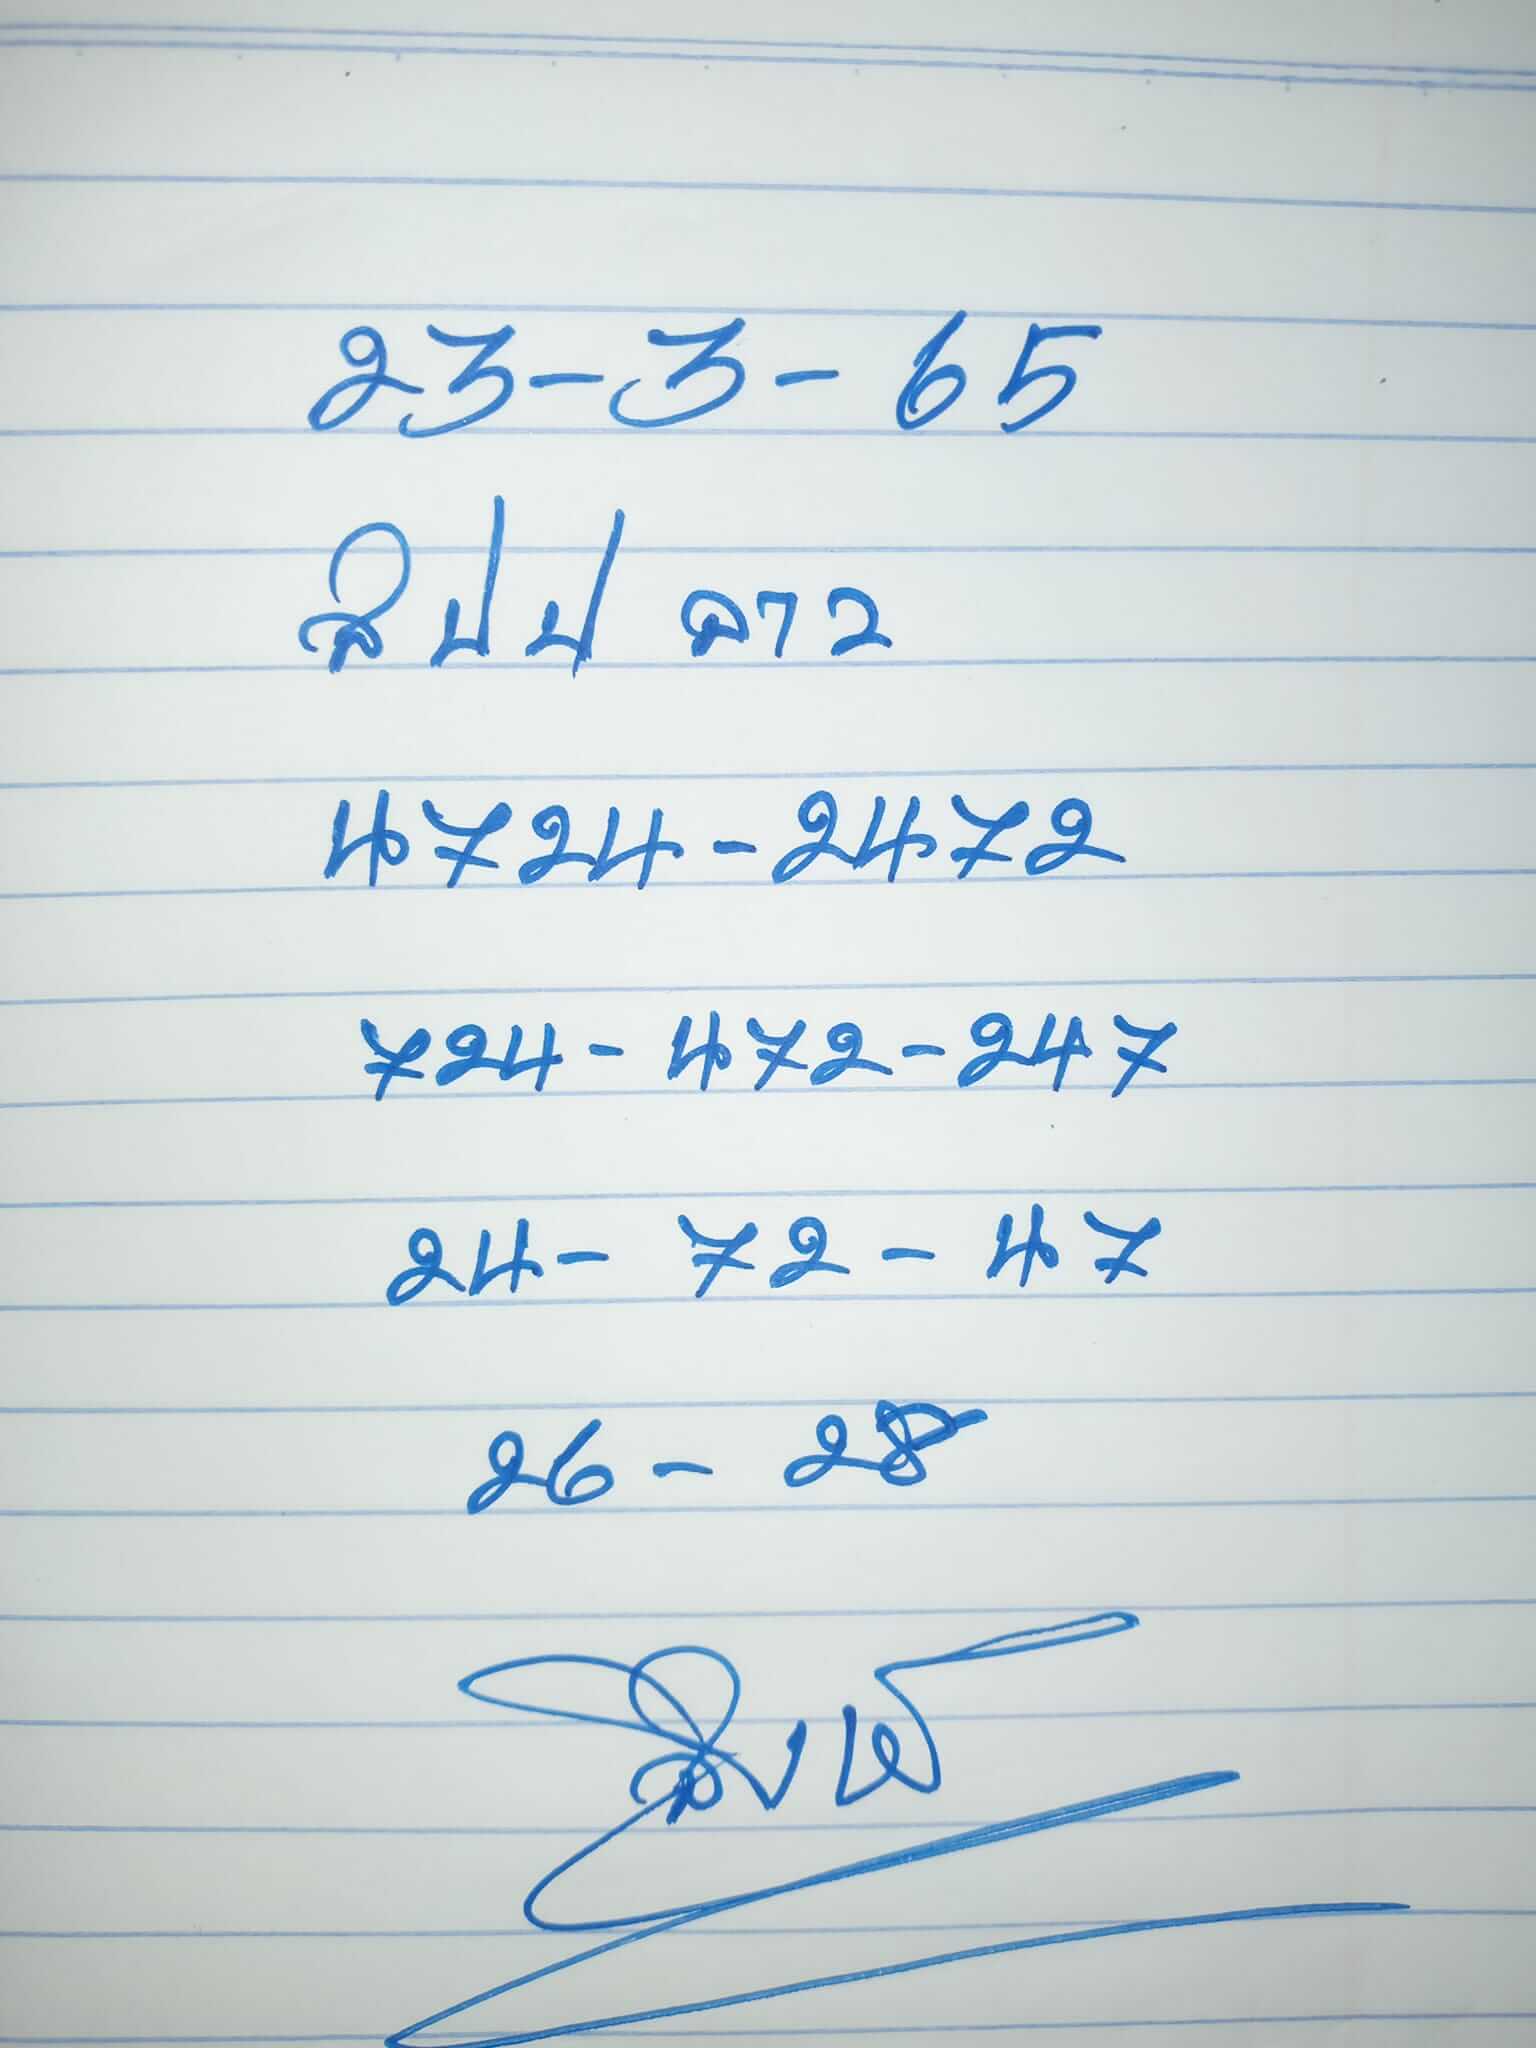 23-3-65
สปป ลาว
4724-2472
724-472-247
24-72-47
26-28